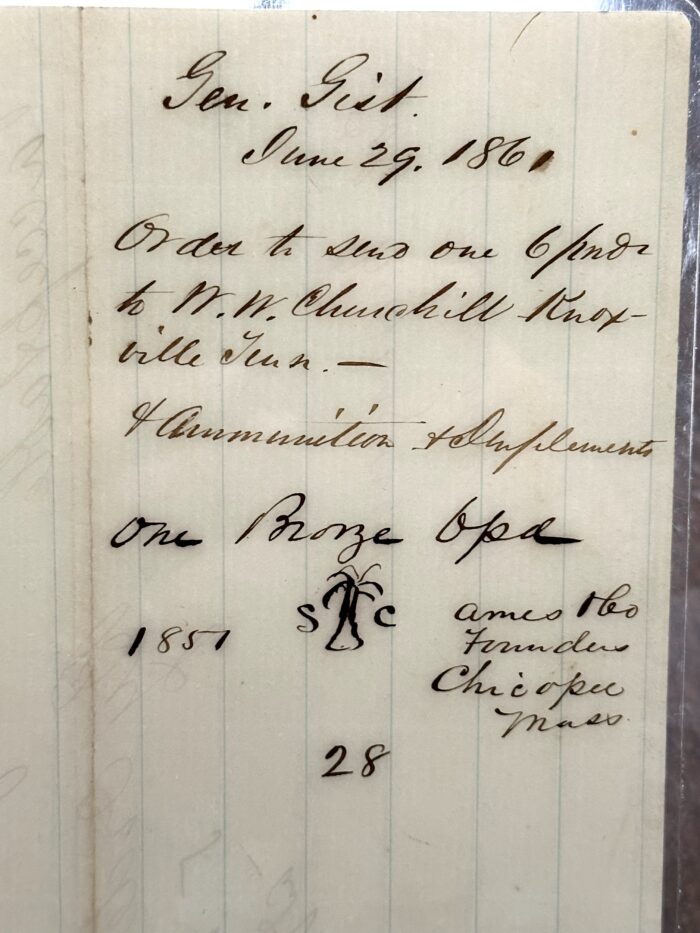 Gen. Gist.
June 29. 1861
Order to send one 6 pndr
to W. W. Churchill Knox-
ville Tenn. —
& Ammunition & Implements
One Bronze 6pd
S C
1851
Ames & Co
Founders
Chicopee
Mass
28